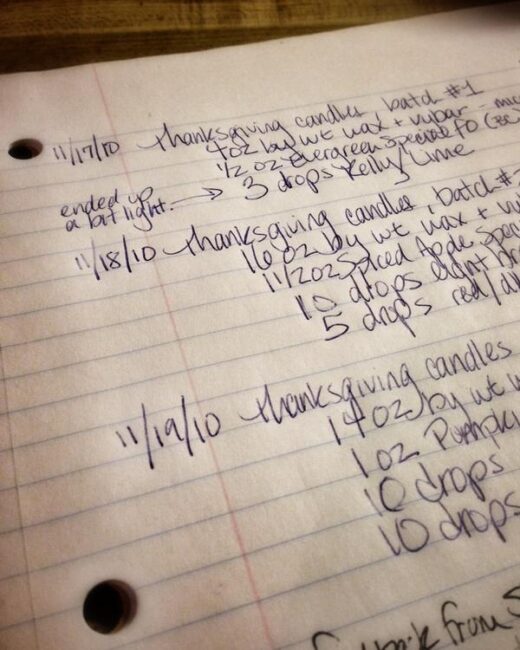 11/17/10 Thanksgiving candles batch #1
4oz by wt wax + vybar
1/2 oz Evergreen Special FO
3 drops Kelly/Lime
ended up
a bit light. →
11/18/10 Thanksgiving candles, batch #
16 oz by wt wax + v
1 1/2 oz Spiced
10 drops light br
5 drops red/
11/19/10 Thanksgiving candles
14 oz by wt w
1 oz Pumpki
10 drops
10 drops
from S